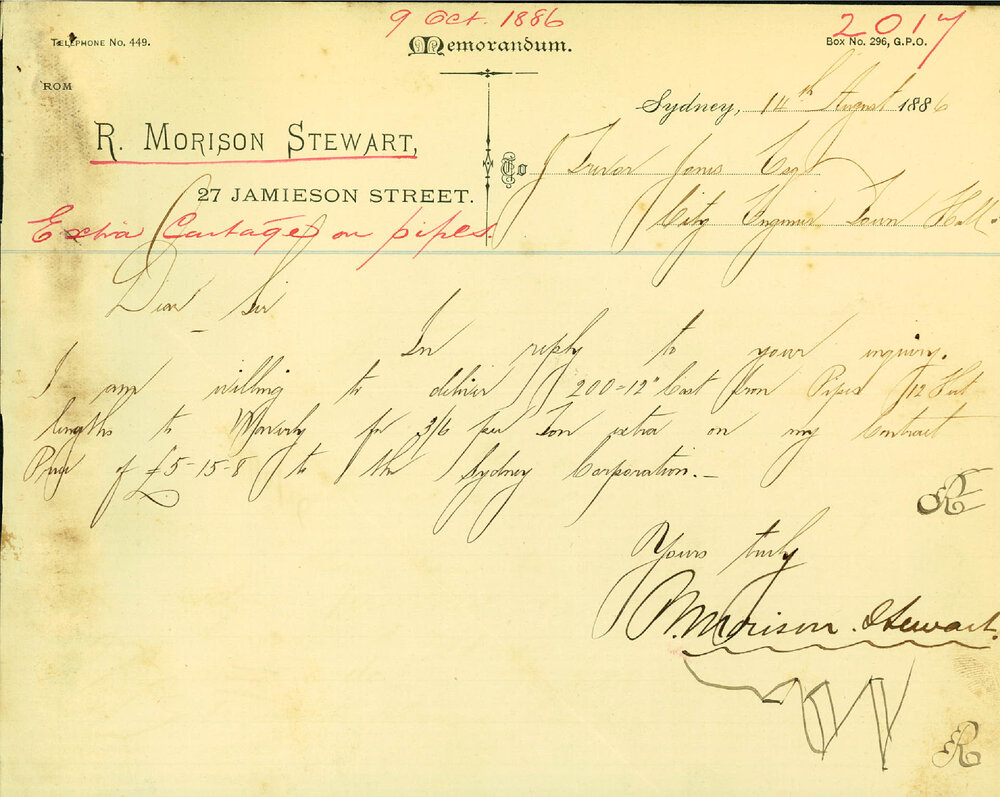 9 Oct. 1886
2017
TELEPHONE NO. 449.
Memorandum.
BOX NO. 296, G.P.O.
ROM
Sydney, 14th August 1886
R. MORISON STEWART,
To J Trevor Jones Esq
27 JAMIESON STREET.
City Engineer Town Hall
Extra Cartage on pipes.
Dear Sir
In reply to your inquiry.
I am willing to deliver 200-12" Cast Iron Pipes 12 Feet
lengths to Waverly for 3/6 per Ton extra on my Contract
Price of £5-15-8 to the Sydney Corporation.-
R
Yours truly
R. Morison Stewart.
R